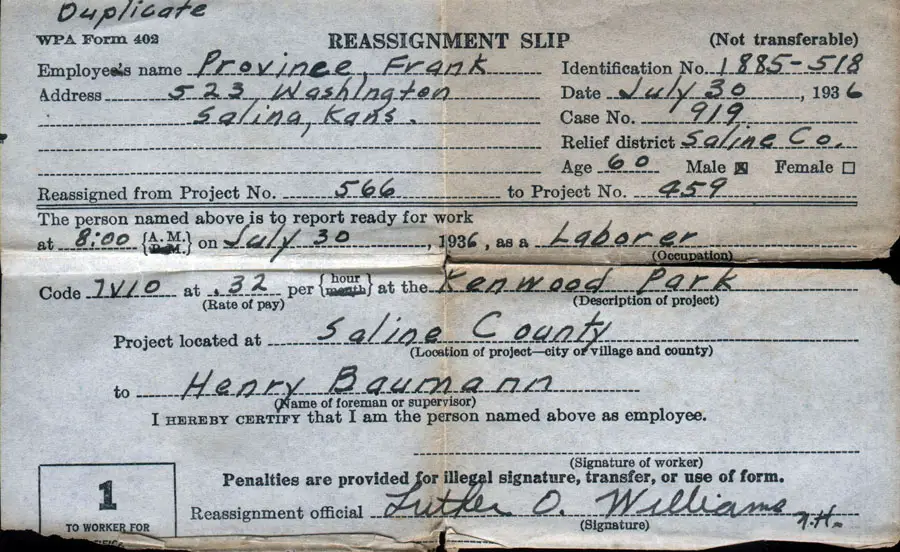 Duplicate
WPA Form 402 REASSIGNMENT SLIP (Not transferable)
Employee's name Province, Frank Identification No. 1885-518
Address 523 Washington Date July 30, 1936
Salina, Kans. Case No. 919
Relief district Saline Co.
Age 60 Male ☒ Female ☐
Reassigned from Project No. 566 to Project No. 459
The person named above is to report ready for work
at 8:00 {A.M. P.M.} on July 30, 1936, as a Laborer
(Occupation)
Code IVIO at .32 per {hour month} at the Kenwood Park
(Rate of pay) (Description of project)
Project located at Saline County
(Location of project—city or village and county)
to Henry Baumann
(Name of foreman or supervisor)
I HEREBY CERTIFY that I am the person named above as employee.
(Signature of worker)
Penalties are provided for illegal signature, transfer, or use of form.
1
Reassignment official Luther O. Williams
TO WORKER FOR (Signature) T.H.